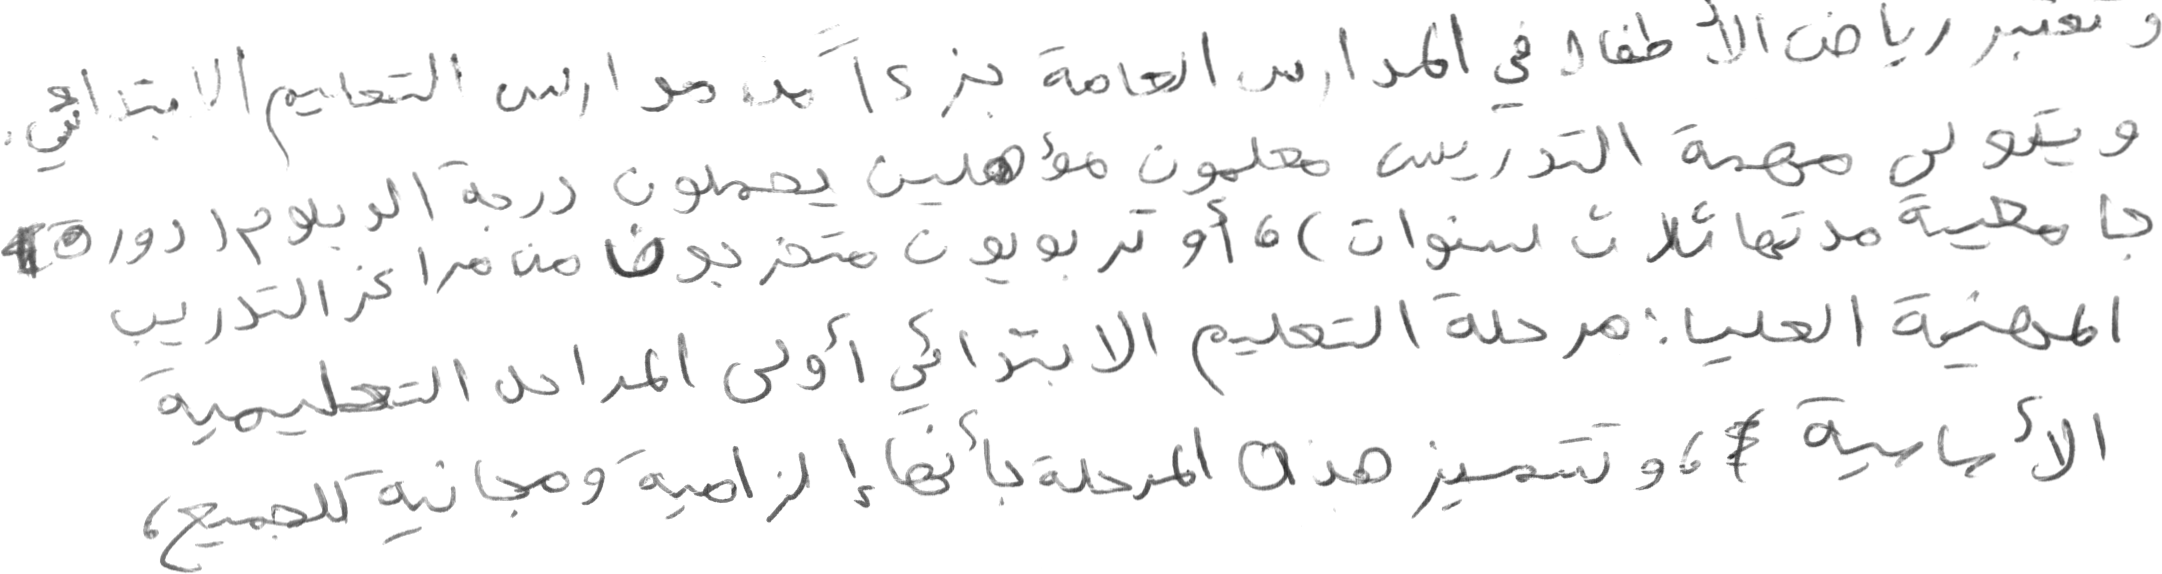 وتعتبر رياض الأطفال في المدارس العامة جزءاً من مدارس التعليم الابتدائي.
ويتولى مهمة التدريس معلمون مؤهلين يحملون درجة الدبلوم (دورة
جامعية مدتها ثلاث سنوات)، أو تربويون متخرجون من مراكز التدريب
المهنية العليا: مرحلة التعليم الابتدائي أولى المراحل التعليمية
الأساسية، وتتميز هذه المرحلة بأنها إلزامية ومجانية للجميع،